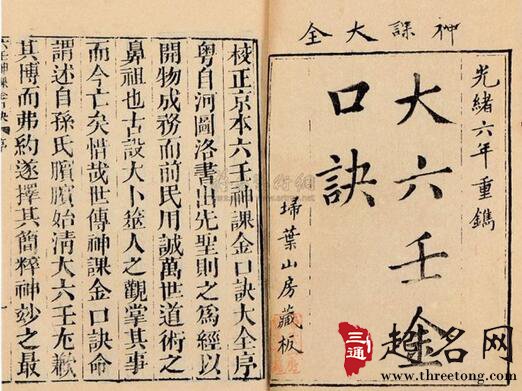 神課大全
光緒六年重鐫
大六壬金
口訣
埽葉山房藏板
校正京本六壬神課金口訣大全序
粵自河圖洛書出先聖則之為經以
開物成務而前民用誠萬世道術之
鼻祖也古設大卜筮人之觀掌其事
而今亡矣惜哉世傳神課金口訣命
謂述自孫氏臏臏始清大六壬尨歉
其博而弗約遂擇其簡粹神妙之最
三通
趣名网
www.threetong.com